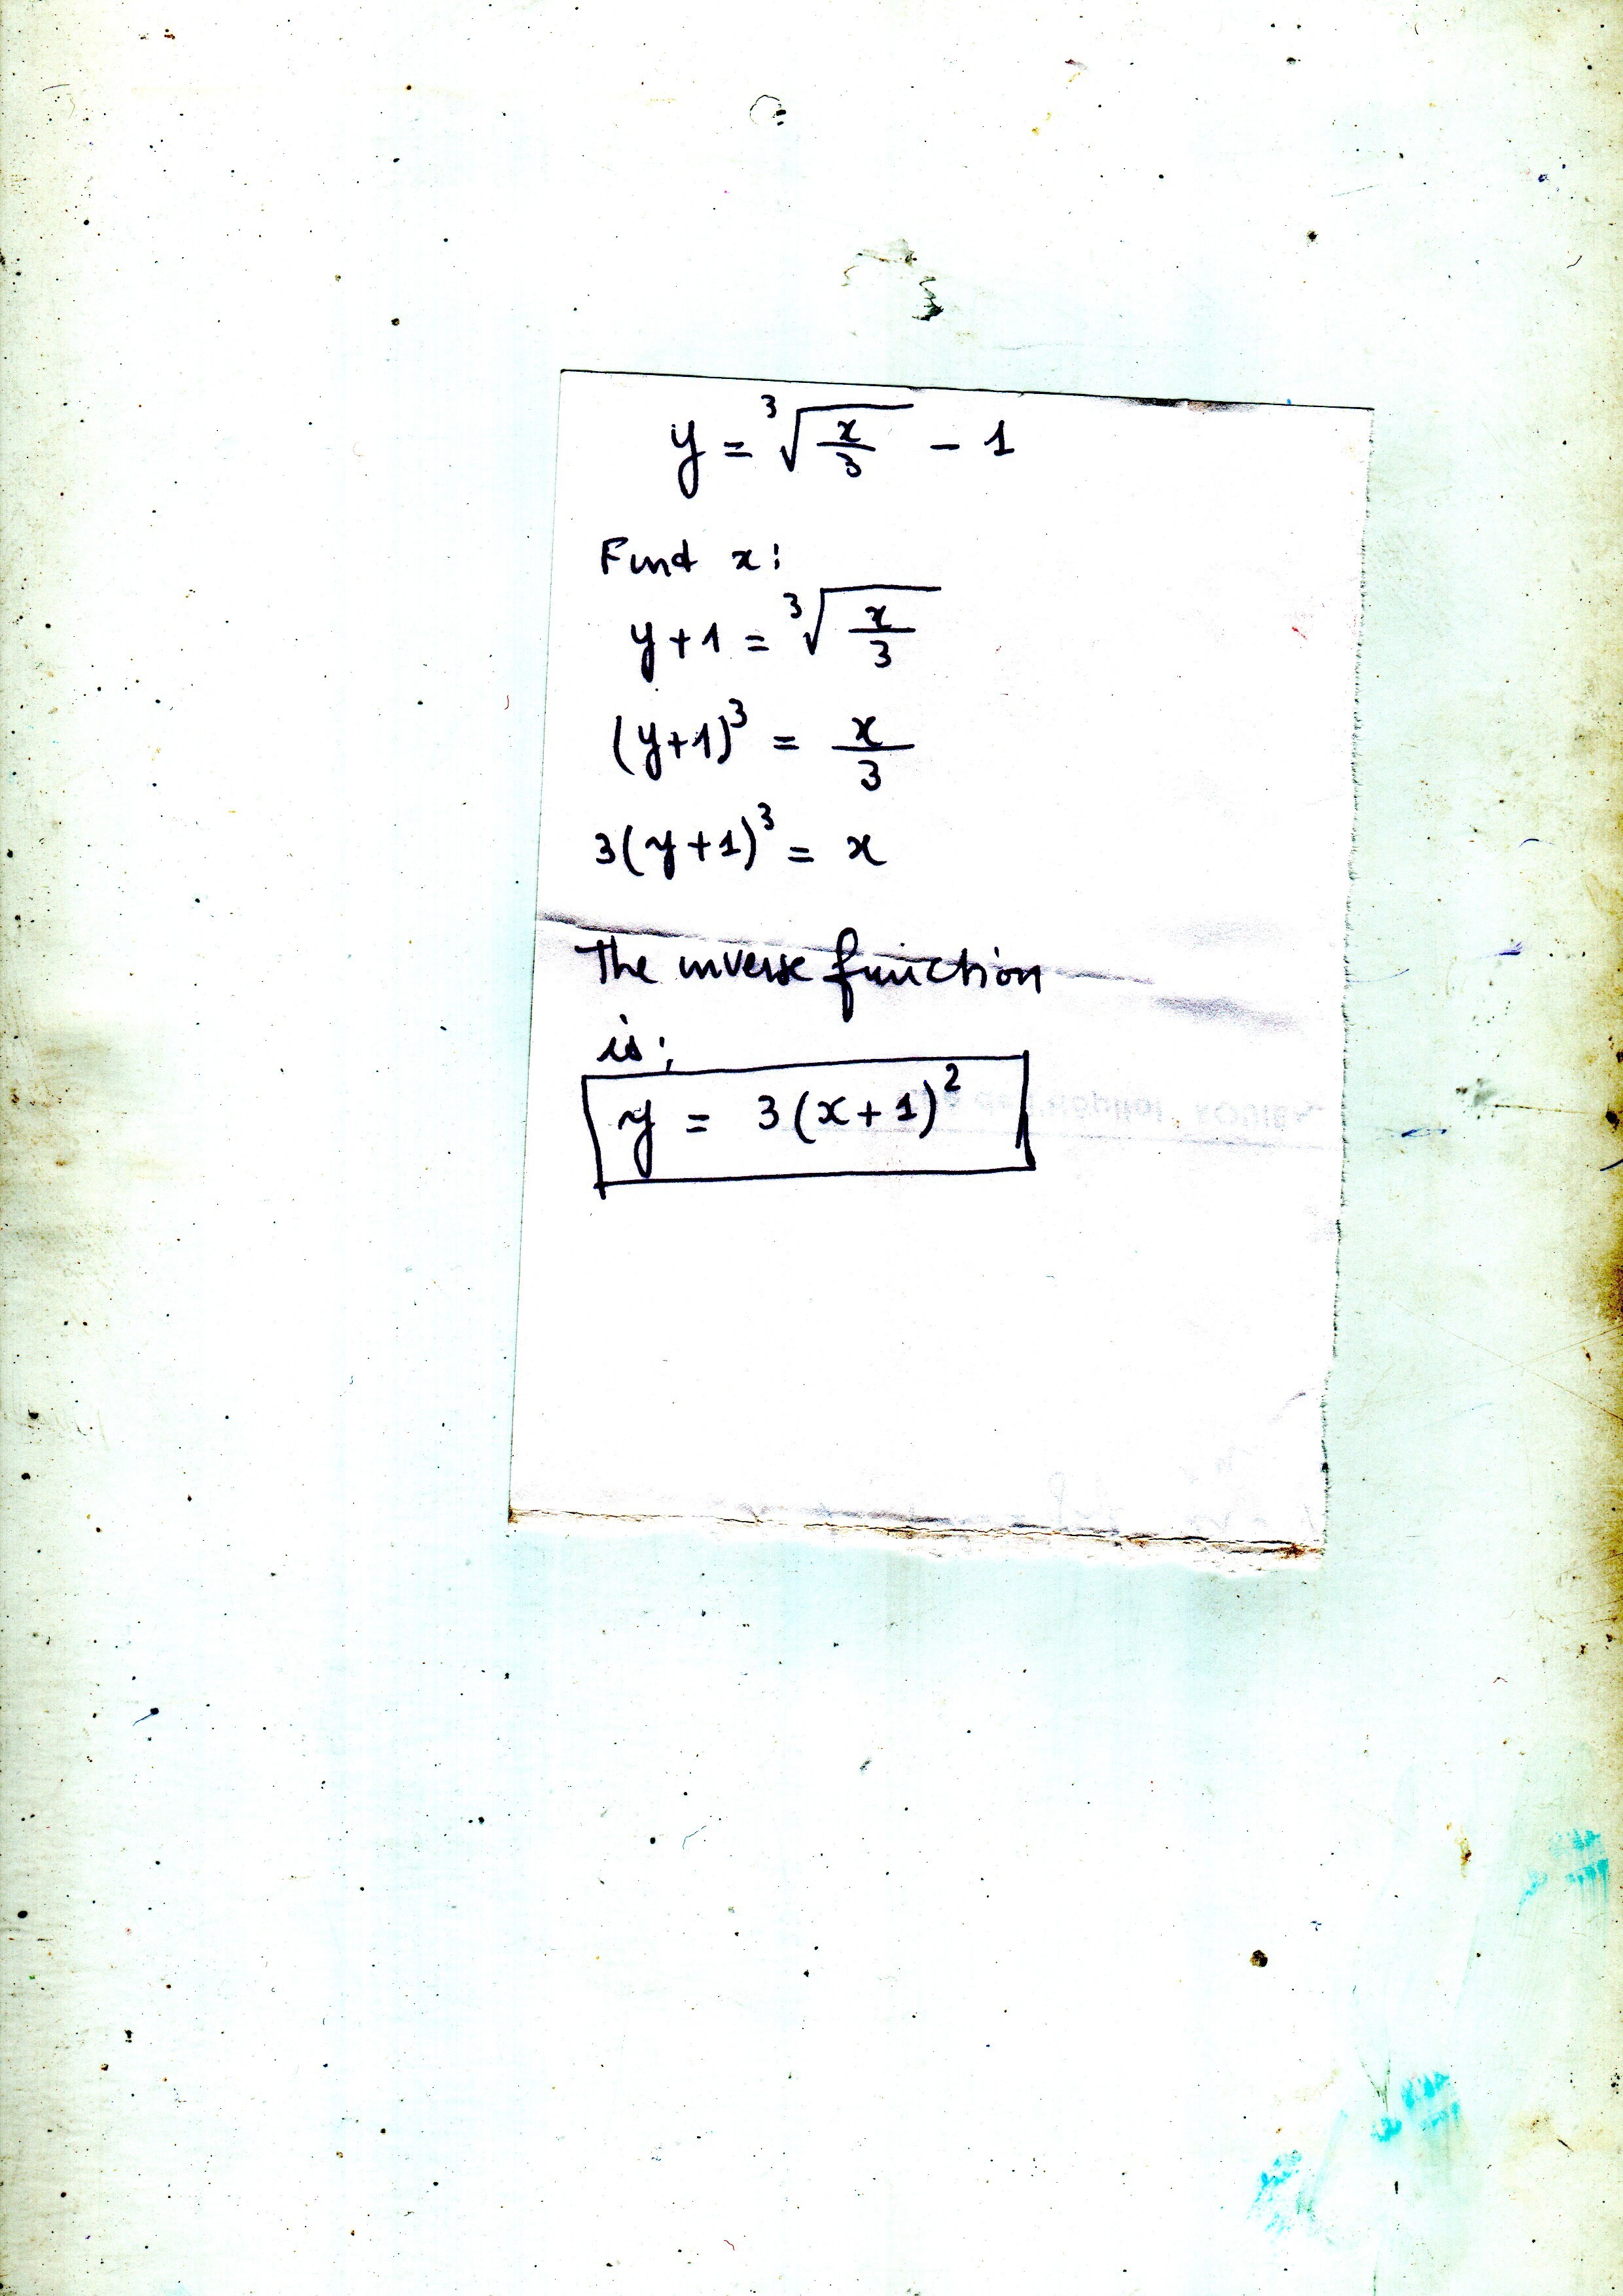 y = ³√(x/3) - 1
Find x:
y + 1 = ³√(x/3)
(y+1)³ = x/3
3(y+1)³ = x
The inverse function
is:
y = 3(x+1)²